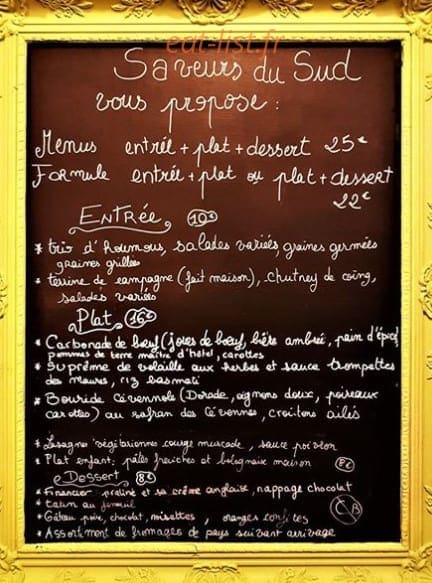 eat-list.fr
Saveurs du Sud
vous propose :
Menus entrée + plat + dessert 25€
Formule entrée + plat ou plat + dessert
22€
Entrée 10€
* trio d'houmous, salades variées, graines germées
graines grillées
* terrine de campagne (fait maison), chutney de coing,
salades variées
Plat 16€
* Carbonade de bœuf (joues de bœuf, bière ambrée, pain d'épice)
pommes de terre maître d'hôtel, carottes
* Suprême de volaille aux herbes et sauce trompettes
des maures, riz basmati
* Bouride Cévennole (Dorade, oignons doux, poireaux
carottes) au safran des Cévennes, croûtons ailés
* Lasagnes végétariennes courge muscade, sauce poivron
* Plat enfant: pâtes fraîches et bolognaise maison 8€
Dessert 8€
* Financier praliné et sa crème anglaise, nappage chocolat
*
* Gâteau poire, chocolat, noisettes, oranges confites
* Assortiment de fromages de pays suivant arrivage
CB